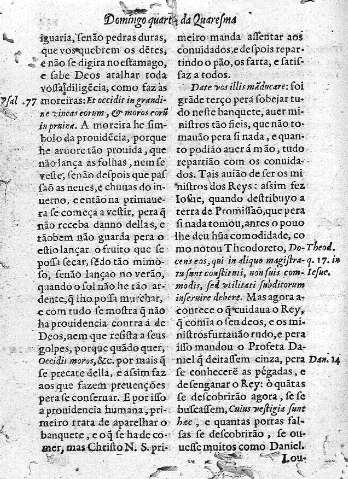 Domingo quarta da Quaresma
iguaria, senão pedras duras,
que vos quebrem os dẽtes,
e não se digira no estamago,
e sabe Deos atalhar toda
vossa diligẽcia, como faz ás
Psal. 77
moreiras: Et occidit in grandi-
ne vineas eorum, & moros eorũ
in pruina. A moreira he sim-
bolo da prouidẽcia, porque
he aruore tão prouida, que
não lança as folhas, nem se
veste, senão despois que pas-
são as neues, e chuuas do in-
uerno, e então na primaue-
ra se começa a vestir, pera q̃
não receba danno dellas, e
tãobem não guarda pera o
estio lançar o fruito que se
possa secar, sẽdo tão mimo-
so, senão lançao no verão,
quando o sol não he tão ar-
dente, q̃ lho possa murchar,
e com tudo se mostra q̃ não
ha prouidencia contra á de
Deos, nem que resista a seus
golpes, porque quãdo quer,
Occidit moros, &c. por mais q̃
se precate della, e assim faz
aos que fazem preuenções
pera se conseruar. E por is-
so a prouidencia humana, pri-
meiro trata de aparelhar o
banquete, e o q̃ se ha de co-
mer, mas Christo N. S. pri-
meiro manda assentar aos
conuidados, e despois repar-
tindo o pão, os farta, e satis-
faz a todos.
Date vos illis mãducare: foi
grãde terço pera sobejar tu-
do neste banquete, auer mi-
nistros tão fieis, que não to-
mauão pera si nada, e quan-
to podião auer á mão, tudo
repartião com os conuida-
dos. Tais auião de ser os mi-
nistros dos Reys: assim fez
Iosue, quando destribuyo a
terra de Promissão, que pera
si nada tomou, antes o pouo
lhe deu hũa comodidade, co
mo notou Theodoreto, Do-
Theod.
cens eos, qui in aliquo magistra-
q. 17. in
tu sunt constituti, non suis com-
Iosue.
modis, sed vtilitati subditorum
inseruire debere. Mas agora a-
contece o q̃ cuidaua o Rey,
q̃ comia o seu deos, e os mi-
nistros furtauão tudo, e pera
isso mandou o Profeta Da-
niel q̃ deitassem cinza, pera
Dan. 14
se conhecerẽ as pégadas, e
desenganar o Rey: ò quãtas
se descobrirão agora, se se
buscassem, Cuius vestigia sunt
hæc, e quantas portas fal-
sas se descobrirão, se ou-
uesse muitos como Daniel.
Lou-